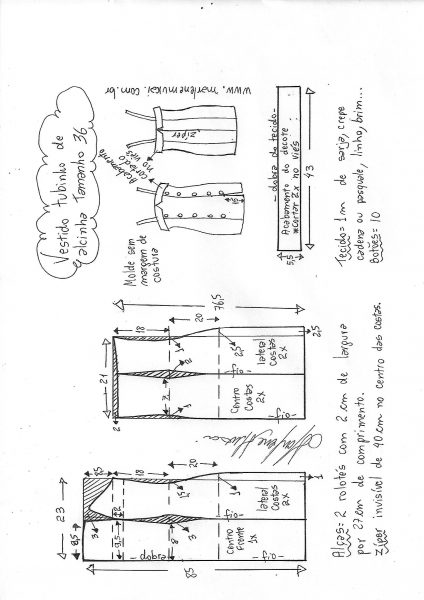 Vestido tubinho de
alcinha Tamanho 36
www.marlenemukai.com.br
zíper
Acabamento
cortado
no viés
15
Molde sem
margem de
costura
dobra do tecido
Acabamento do decote
*Cortar 2x no viés
5,5
43
Tecido = 1m de sarja, crepe
cadena ou pasquale, linho, brim...
Botões = 10
76,5
18
20
21
2
2,5
2,5
lateral
costas
2x
Centro
costas
2x
fio
fio
23
8,5
8,5
18
20
3
2
9,5
8
3
1
1
lateral
costas
2x
Centro
frente
1x
fio
fio
dobra
85
Alças = 2 rolotês com 2cm de largura
por 27cm de comprimento.
Zíper invisível de 40cm no centro das costas.